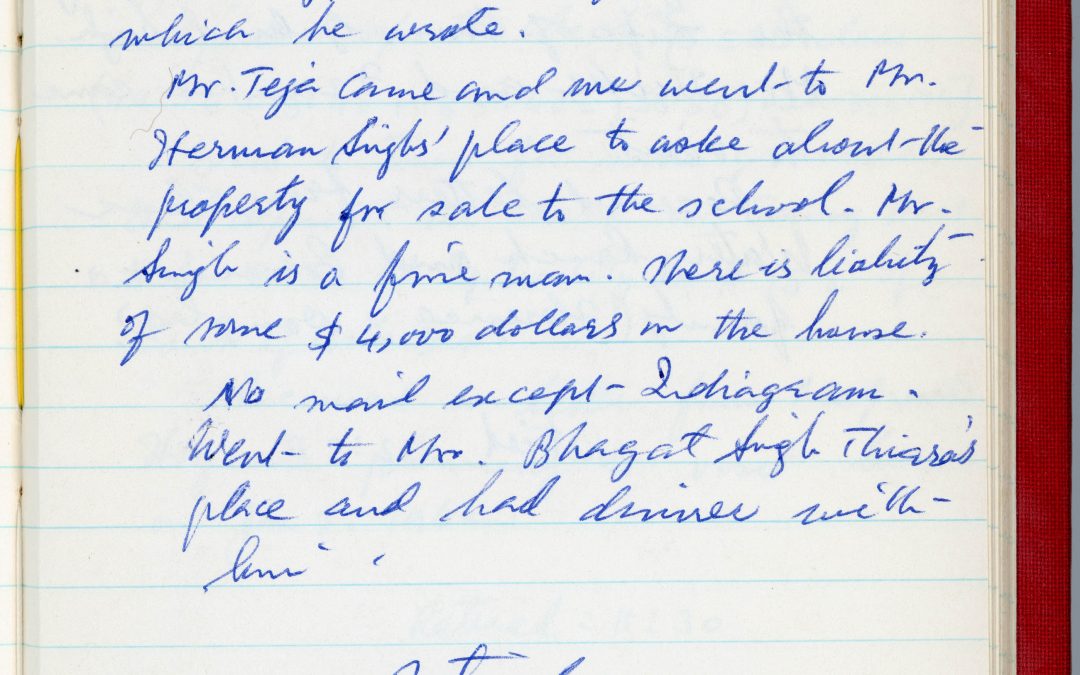 which he wrote.
Mr. Teja came and we went to Mr.
Herman Singhs' place to aske about the
property for sale to the school. Mr.
Singh is a fine man. There is liability
of some $ 4,000 dollars on the house.
No mail except 2 diagram.
Went to Mr. Bhagat Singh Thiara's
place and had dinner with
him.